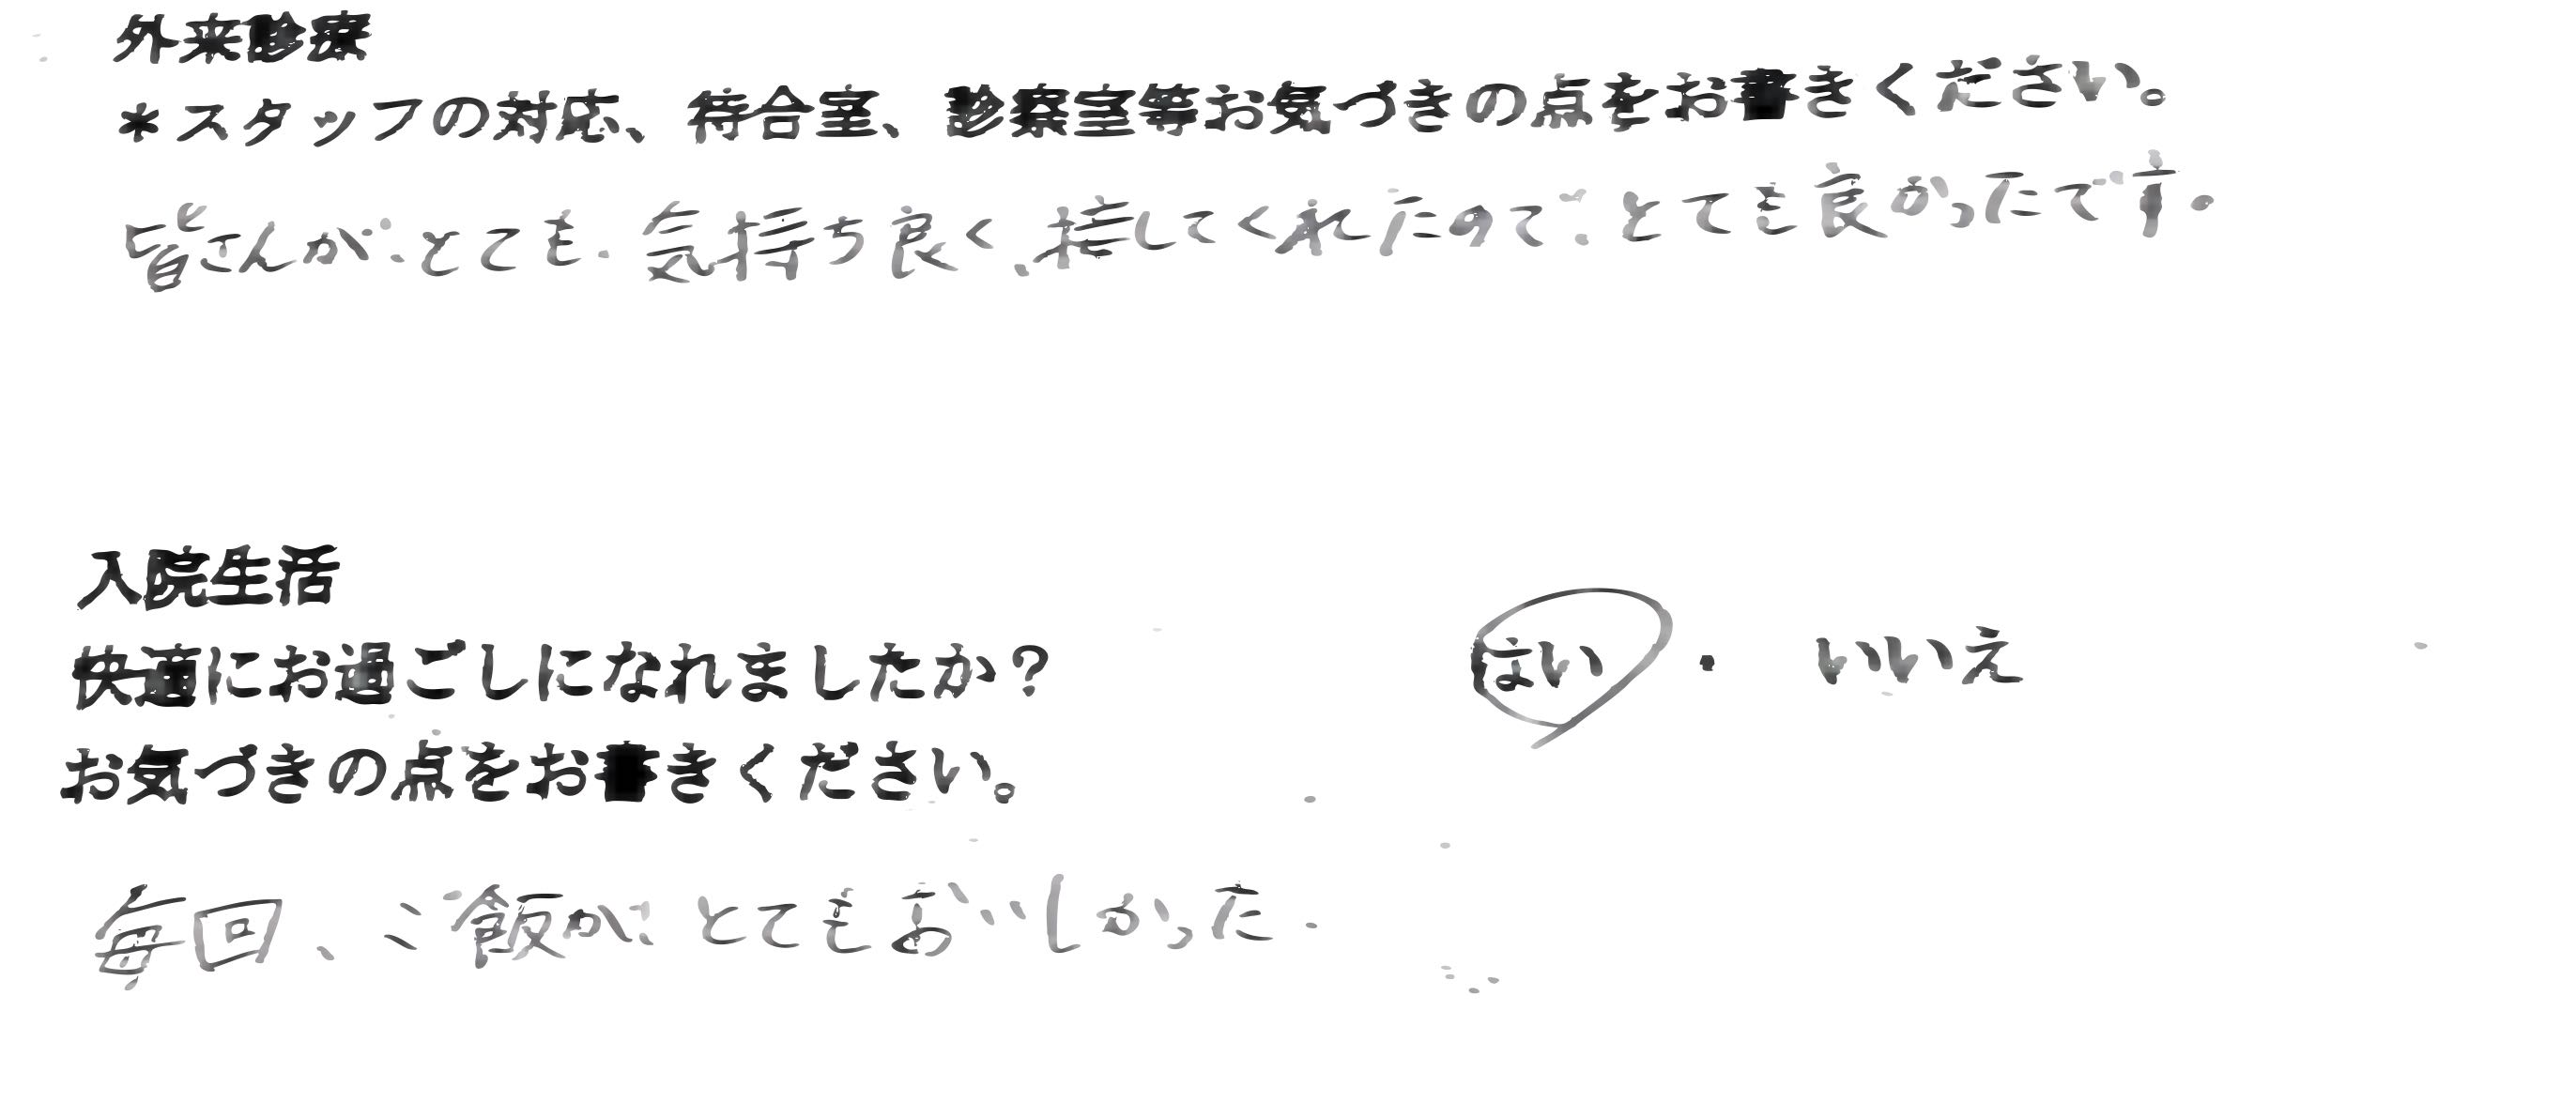 外来診療
*スタッフの対応、待合室、診察室等お気づきの点をお書きください。
皆さんがとても気持ち良く、接してくれたのでとても良かったです。
入院生活
快適にお過ごしになれましたか? はい ・ いいえ
お気づきの点をお書きください。
毎回、ご飯がとてもおいしかった.